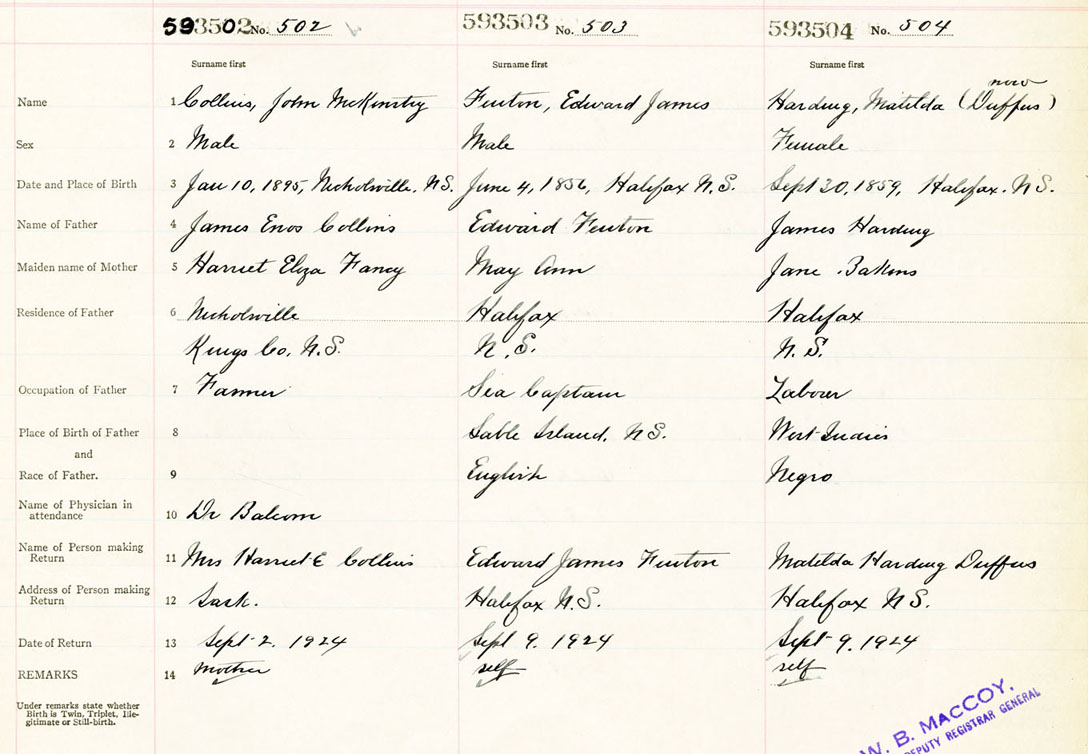 593502 No. 502 593503 No. 503 593504 No. 504
Surname first Surname first Surname first
now
Name 1 Collins, John McKinstry Fenton, Edward James Harding, Matilda (Duffus)
Sex 2 Male Male Female
Date and Place of Birth 3 Jan 10, 1895, Nicholville, N.S. June 4, 1856, Halifax N.S. Sept 30, 1859, Halifax. N.S.
Name of Father 4 James Enos Collins Edward Fenton James Harding
Maiden name of Mother 5 Harriet Eliza Fancy May Ann Jane
Residence of Father 6 Nicholville Halifax Halifax
Kings Co. N.S. N.S. N.S.
Occupation of Father 7 Farmer Sea Captain Laborer
Place of Birth of Father 8 Sable Island, N.S. West Indies
and
Race of Father. 9 English Negro
Name of Physician in
attendance 10 Dr Balcom
Name of Person making
Return 11 Mrs Harriet E Collins Edward James Fenton Matilda Harding Duffus
Address of Person making
Return 12 Sask. Halifax N.S. Halifax N.S.
Date of Return 13 Sept 2. 1924 Sept 9. 1924 Sept 9. 1924
REMARKS 14 mother self self
Under remarks state whether
Birth is Twin, Triplet, Ille-
gitimate or Still-birth.
W. B. MACCOY.
DEPUTY REGISTRAR GENERAL